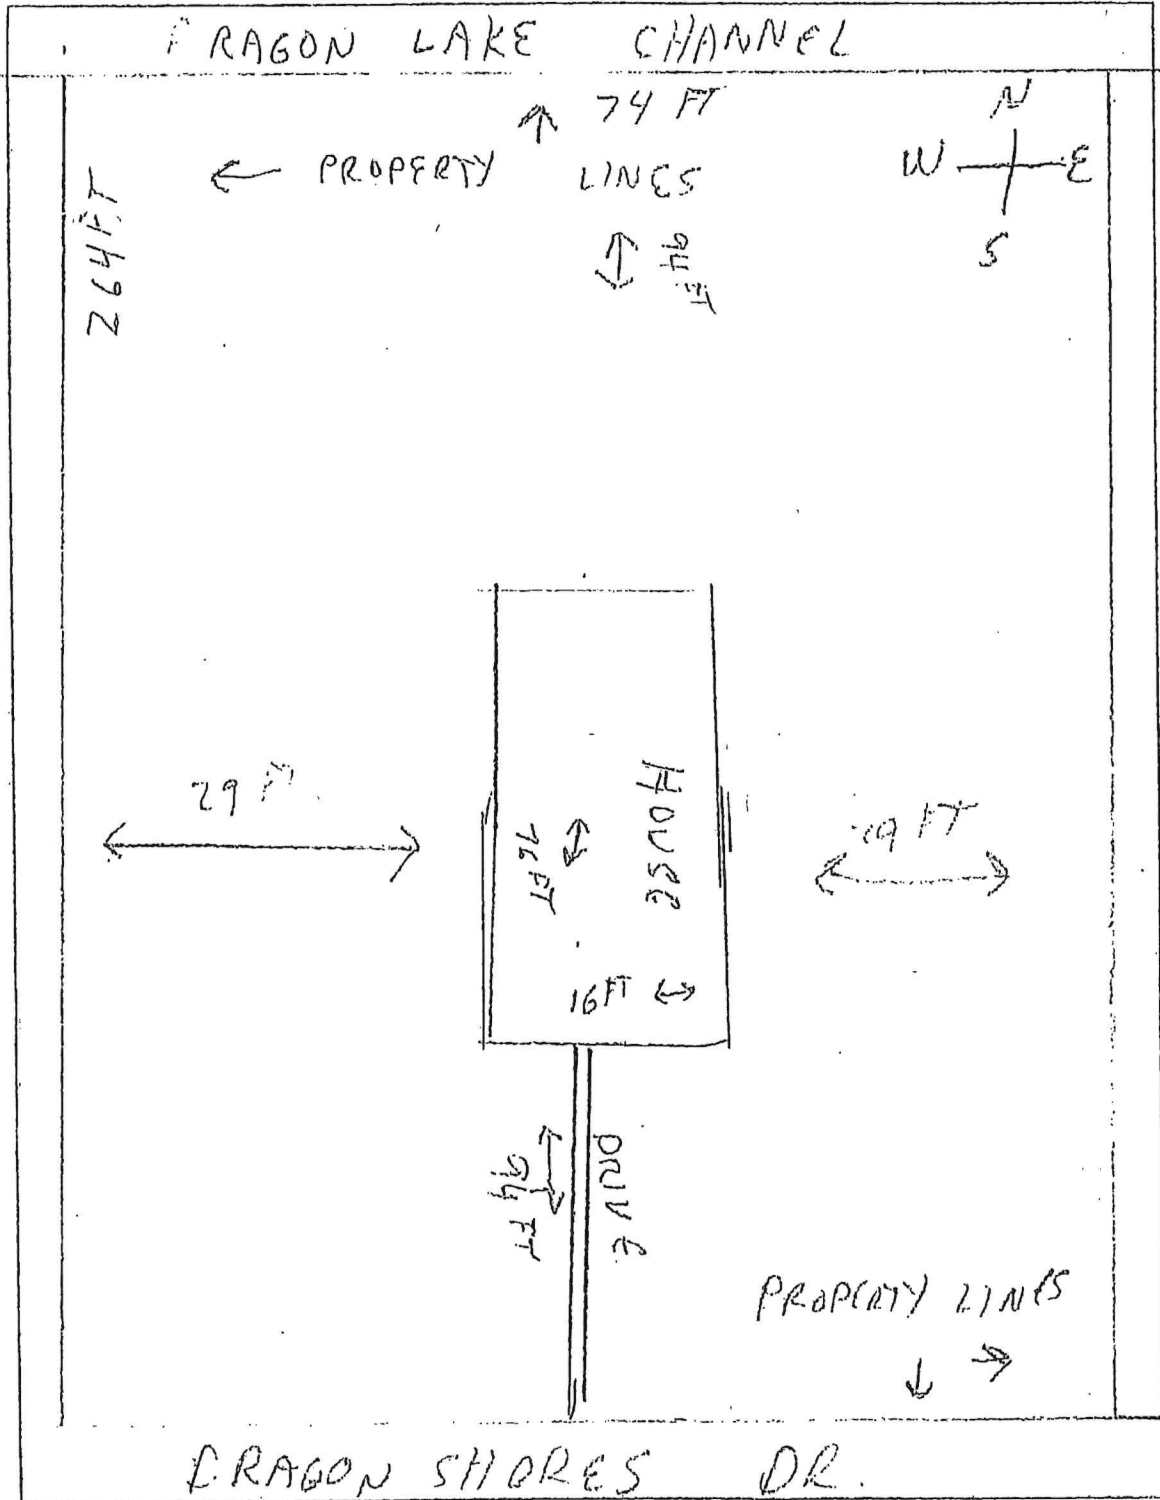 DRAGON LAKE CHANNEL
74 FT
← PROPERTY LINES
N
W E
S
264 FT
94 FT
29 FT
HOUSE
76 FT
29 FT
16 FT
DRIVE
94 FT
PROPERTY LINES
DRAGON SHORES DR.